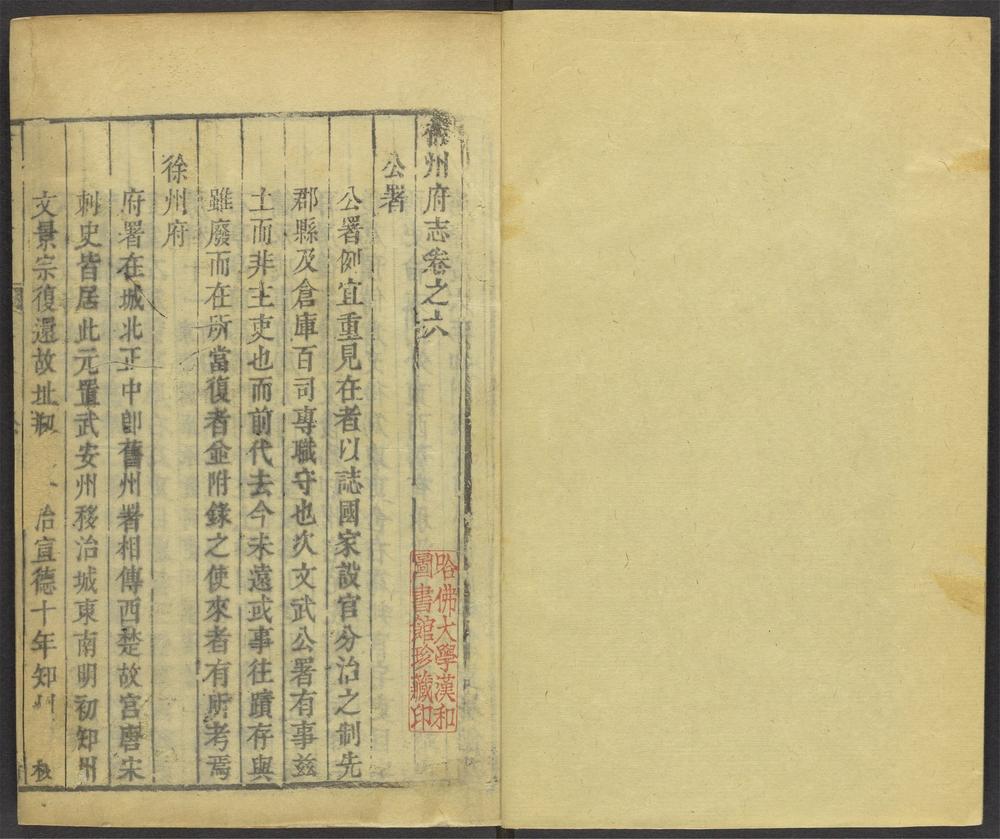 徐州府志卷之六
公署
公署例宜重見在者以誌國家設官分治之制先
郡縣及倉庫百司專職守也次文武公署有事茲
土而非主吏也而前代去今未遠或事往蹟存與
雖廢而在所當復者並附錄之使來者有所考焉
徐州府
府署在城北正中卽舊州署相傳西楚故宮唐宋
刺史皆居此元置武安州移治城東南明初知州
文景宗復還故址
治宣德十年知州
哈佛大學漢和
圖書館珍藏印